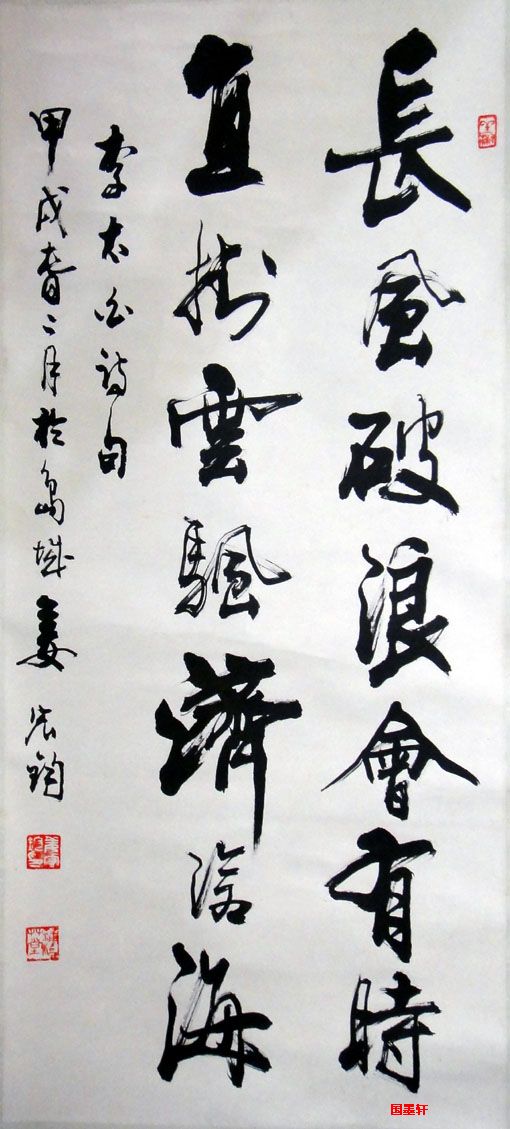 長風破浪會有時
直掛雲颿濟滄海
李太白詩句
甲戌春二月於島城姜鈞
国墨轩